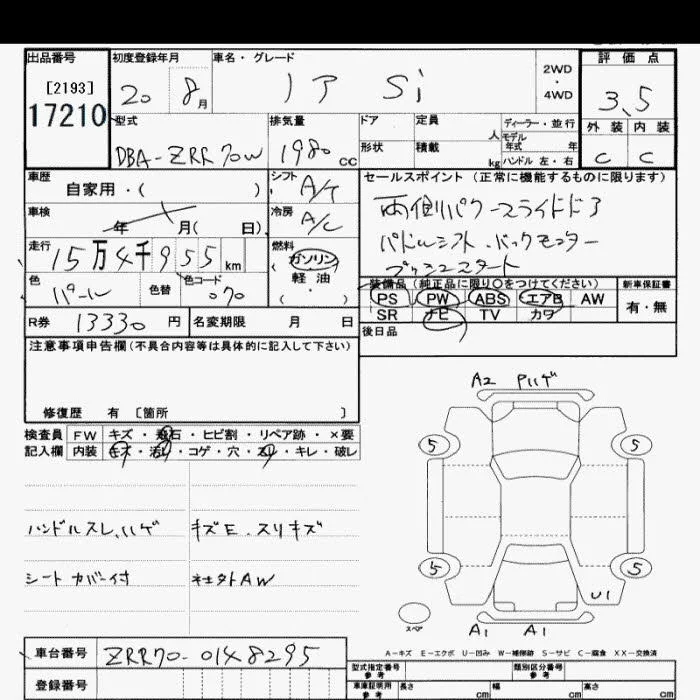 出品番号 初度登録年月 車名・グレード 評価点
[2193] 20 8月 ノア Si 2WD・4WD 3.5
17210 型式 排気量 ドア 定員 人 ディーラー・並行 外装 内装
モデル年式 年
DBA-ZRR70W 1980cc 形状 積載 kg ハンドル 左・右 C C
車歴 シフト セールスポイント (正常に機能するものに限ります)
自家用・( ) A/T 両側パワースライドドア
車検 年 月( 日) 冷房 A/C パドルシフト・バックモニター
走行 15万4千955km 燃料 ガソリン プッシュスタート
軽油
( ・ )
色 パール 色替 色コード 070 装備品 (純正品に限り○をつけてください) 新車保証書
PS PW ABS エアB AW 有・無
R券 13330円 名変期限 月 日 SR ナビ TV カワ
注意事項申告欄(不具合内容等は具体的に記入して下さい) 後日品
修復歴 有 [箇所 ]
検査員 FW キズ・飛石・ヒビ割・リペア跡・×要
記入欄 内装 キズ・汚れ・コゲ・穴・スレ・キレ・破レ
A2 Pハゲ
5 5
ハンドルスレ、ハゲ キズE・スリキズ
シートカバー付 社外AW
5 5
U1
スペア
A1 A1
A-キズ E-エクボ U-凹み W-補修跡 S-サビ C-腐食 XX-交換済
車台番号 ZRR70-0148295
型式指定番号 参考 類別区分番号 参考
登録番号 車庫証明用 参考 長さ cm 幅 cm 高さ cm